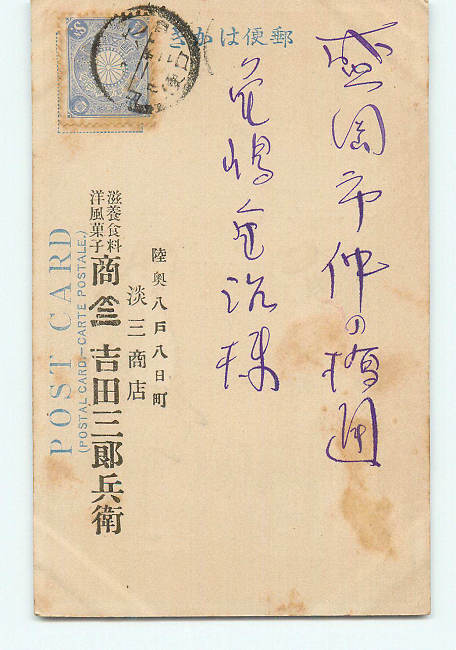 郵便はかき
盛岡市仲の橋通
嶋金治様
陸奥八戸八日町
淡三商店
滋養食料
洋風菓子
商 吉田三郎兵衛
POST CARD
(POSTAL CARD—CARTE POSTALE.)